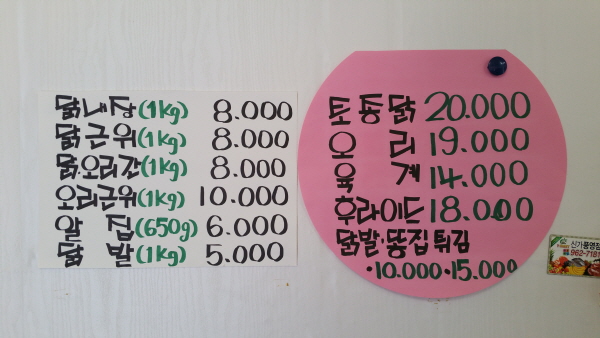 닭내장(1kg) 8.000
닭근위(1kg) 8.000
닭.오리간(1kg) 8.000
오리근위(1kg) 10.000
알집(650g) 6.000
닭발(1kg) 5.000
토종닭 20.000
오리 19.000
육계 14.000
후라이드 18.000
닭발·똥집 튀김
·10.000·15.000
신가풍영점
962-7181